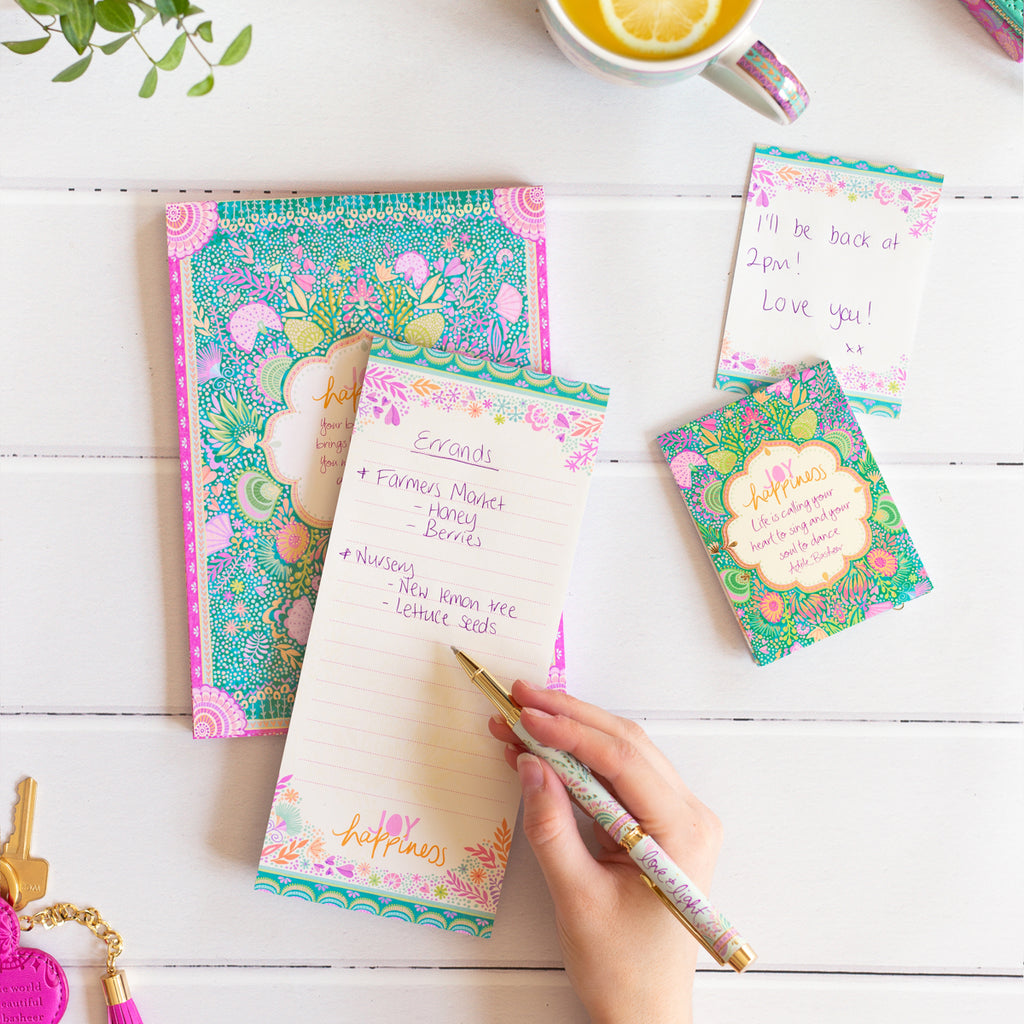 I'll be back at
2pm!
Love you!
xx
JOY
happiness
Life is calling your
heart to sing and your
soul to dance
Errands
* Farmers Market
- Honey
- Berries
* Nursery
- New lemon tree
- Lettuce seeds
JOY
happiness
love + light
your
brings
you
world